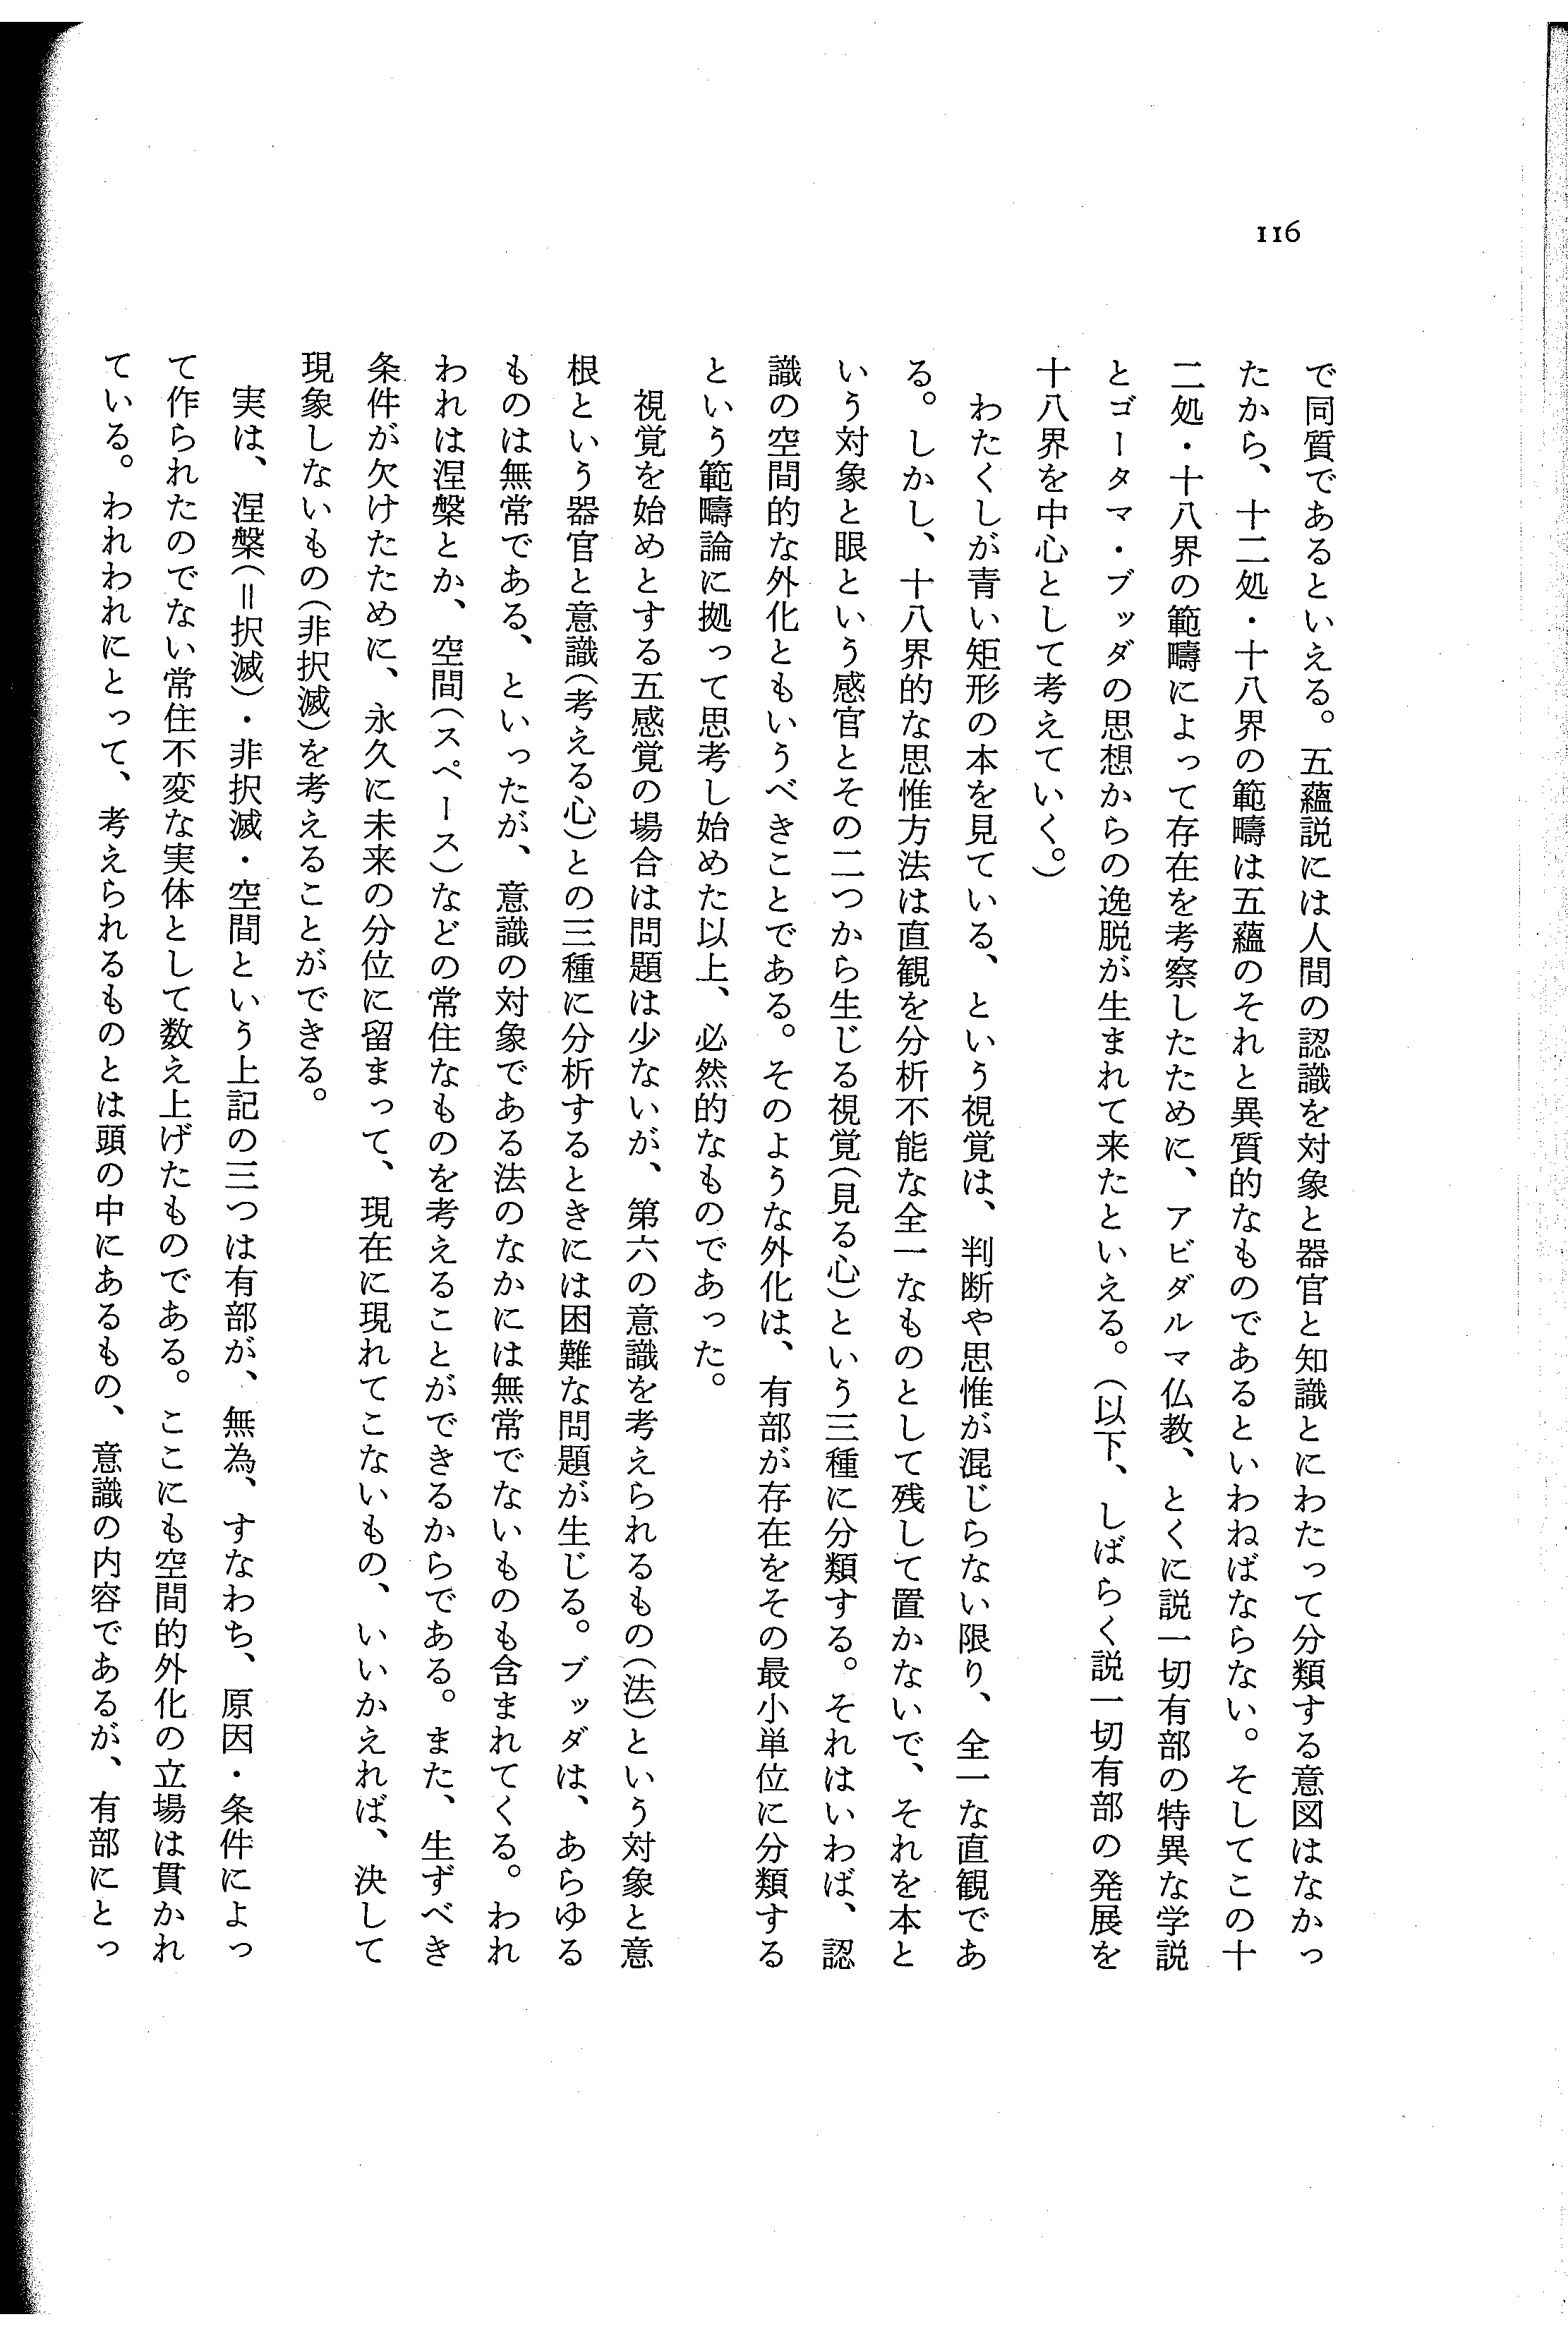 116
で同質であるといえる。五蘊説には人間の認識を対象と器官と知識とにわたって分類する意図はなかっ
たから、十二処・十八界の範疇は五蘊のそれと異質的なものであるといわねばならない。そしてこの十
二処・十八界の範疇によって存在を考察したために、アビダルマ仏教、とくに説一切有部の特異な学説
とゴータマ・ブッダの思想からの逸脱が生まれて来たといえる。（以下、しばらく説一切有部の発展を
十八界を中心として考えていく。）
　わたくしが青い矩形の本を見ている、という視覚は、判断や思惟が混じらない限り、全一な直観であ
る。しかし、十八界的な思惟方法は直観を分析不能な全一なものとして残して置かないで、それを本と
いう対象と眼という感官とその二つから生じる視覚（見る心）という三種に分類する。それはいわば、認
識の空間的な外化ともいうべきことである。そのような外化は、有部が存在をその最小単位に分類する
という範疇論に拠って思考し始めた以上、必然的なものであった。
　視覚を始めとする五感覚の場合は問題は少ないが、第六の意識を考えられるもの（法）という対象と意
根という器官と意識（考える心）との三種に分析するときには困難な問題が生じる。ブッダは、あらゆる
ものは無常である、といったが、意識の対象である法のなかには無常でないものも含まれてくる。われ
われは涅槃とか、空間（スペース）などの常住なものを考えることができるからである。また、生ずべき
条件が欠けたために、永久に未来の分位に留まって、現在に現れてこないもの、いいかえれば、決して
現象しないもの（非択滅）を考えることができる。
　実は、涅槃（＝択滅）・非択滅・空間という上記の三つは有部が、無為、すなわち、原因・条件によっ
て作られたのでない常住不変な実体として数え上げたものである。ここにも空間的外化の立場は貫かれ
ている。われわれにとって、考えられるものとは頭の中にあるもの、意識の内容であるが、有部にとっ